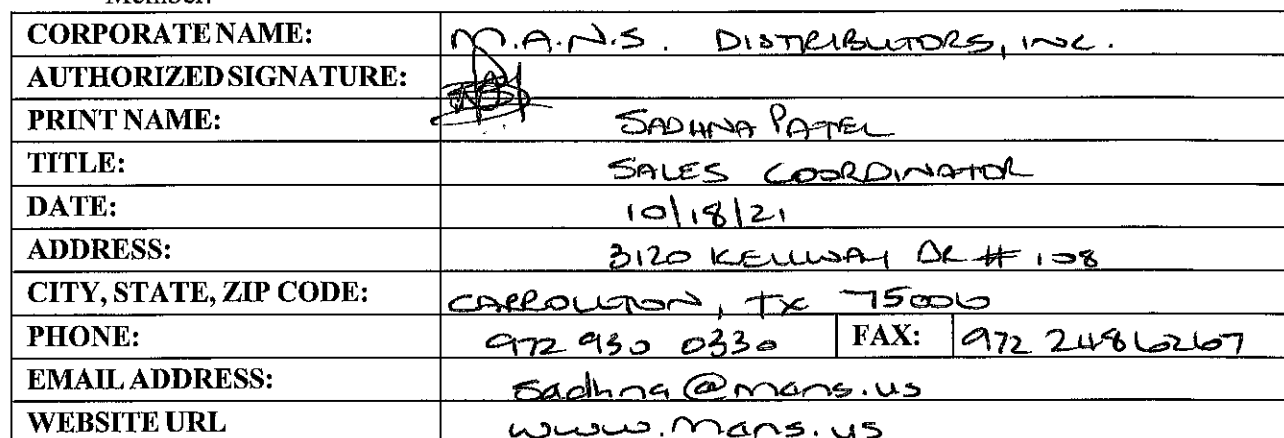 Member.
CORPORATE NAME: M.A.N.S. DISTRIBUTORS, INC.
AUTHORIZED SIGNATURE:
PRINT NAME: SADHNA PATEL
TITLE: SALES COORDINATOR
DATE: 10/18/21
ADDRESS: 3120 KELLWAY DR # 108
CITY, STATE, ZIP CODE: CARROLLTON, TX 75006
PHONE: 972 930 0330 FAX: 972 248 6267
EMAIL ADDRESS: sadhna@mans.us
WEBSITE URL www.mans.us